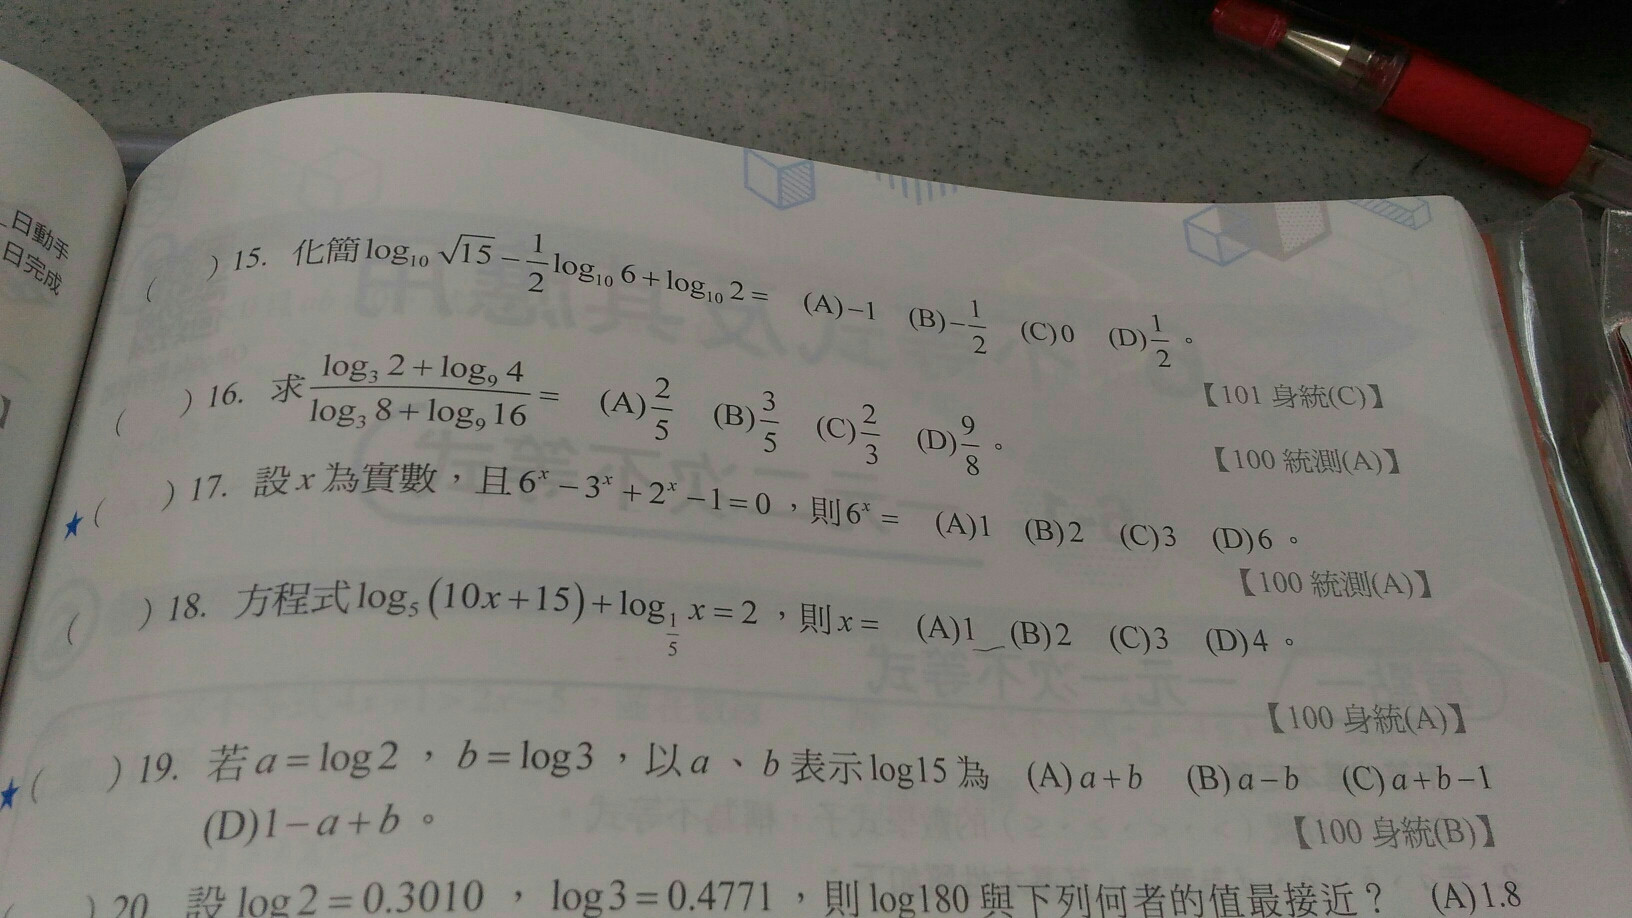 日動手
日完成
( ) 15. 化簡 log₁₀ √15 − 1/2 log₁₀ 6 + log₁₀ 2 = (A) −1 (B) −1/2 (C) 0 (D) 1/2 。
【101 身統(C)】
( ) 16. 求 (log₃ 2 + log₉ 4)/(log₃ 8 + log₉ 16) = (A) 2/5 (B) 3/5 (C) 2/3 (D) 9/8 。
【100 統測(A)】
★( ) 17. 設 x 為實數，且 6ˣ − 3ˣ + 2ˣ − 1 = 0 ，則 6ˣ = (A)1 (B)2 (C)3 (D)6 。
【100 統測(A)】
( ) 18. 方程式 log₅ (10x + 15) + log_(1/5) x = 2 ，則 x = (A)1 (B)2 (C)3 (D)4 。
【100 身統(A)】
★( ) 19. 若 a = log2 ， b = log3 ，以 a 、 b 表示 log15 為 (A) a + b (B) a − b (C) a + b − 1
(D) 1 − a + b 。
【100 身統(B)】
( ) 20. 設 log 2 = 0.3010 ， log 3 = 0.4771 ，則 log180 與下列何者的值最接近？ (A)1.8